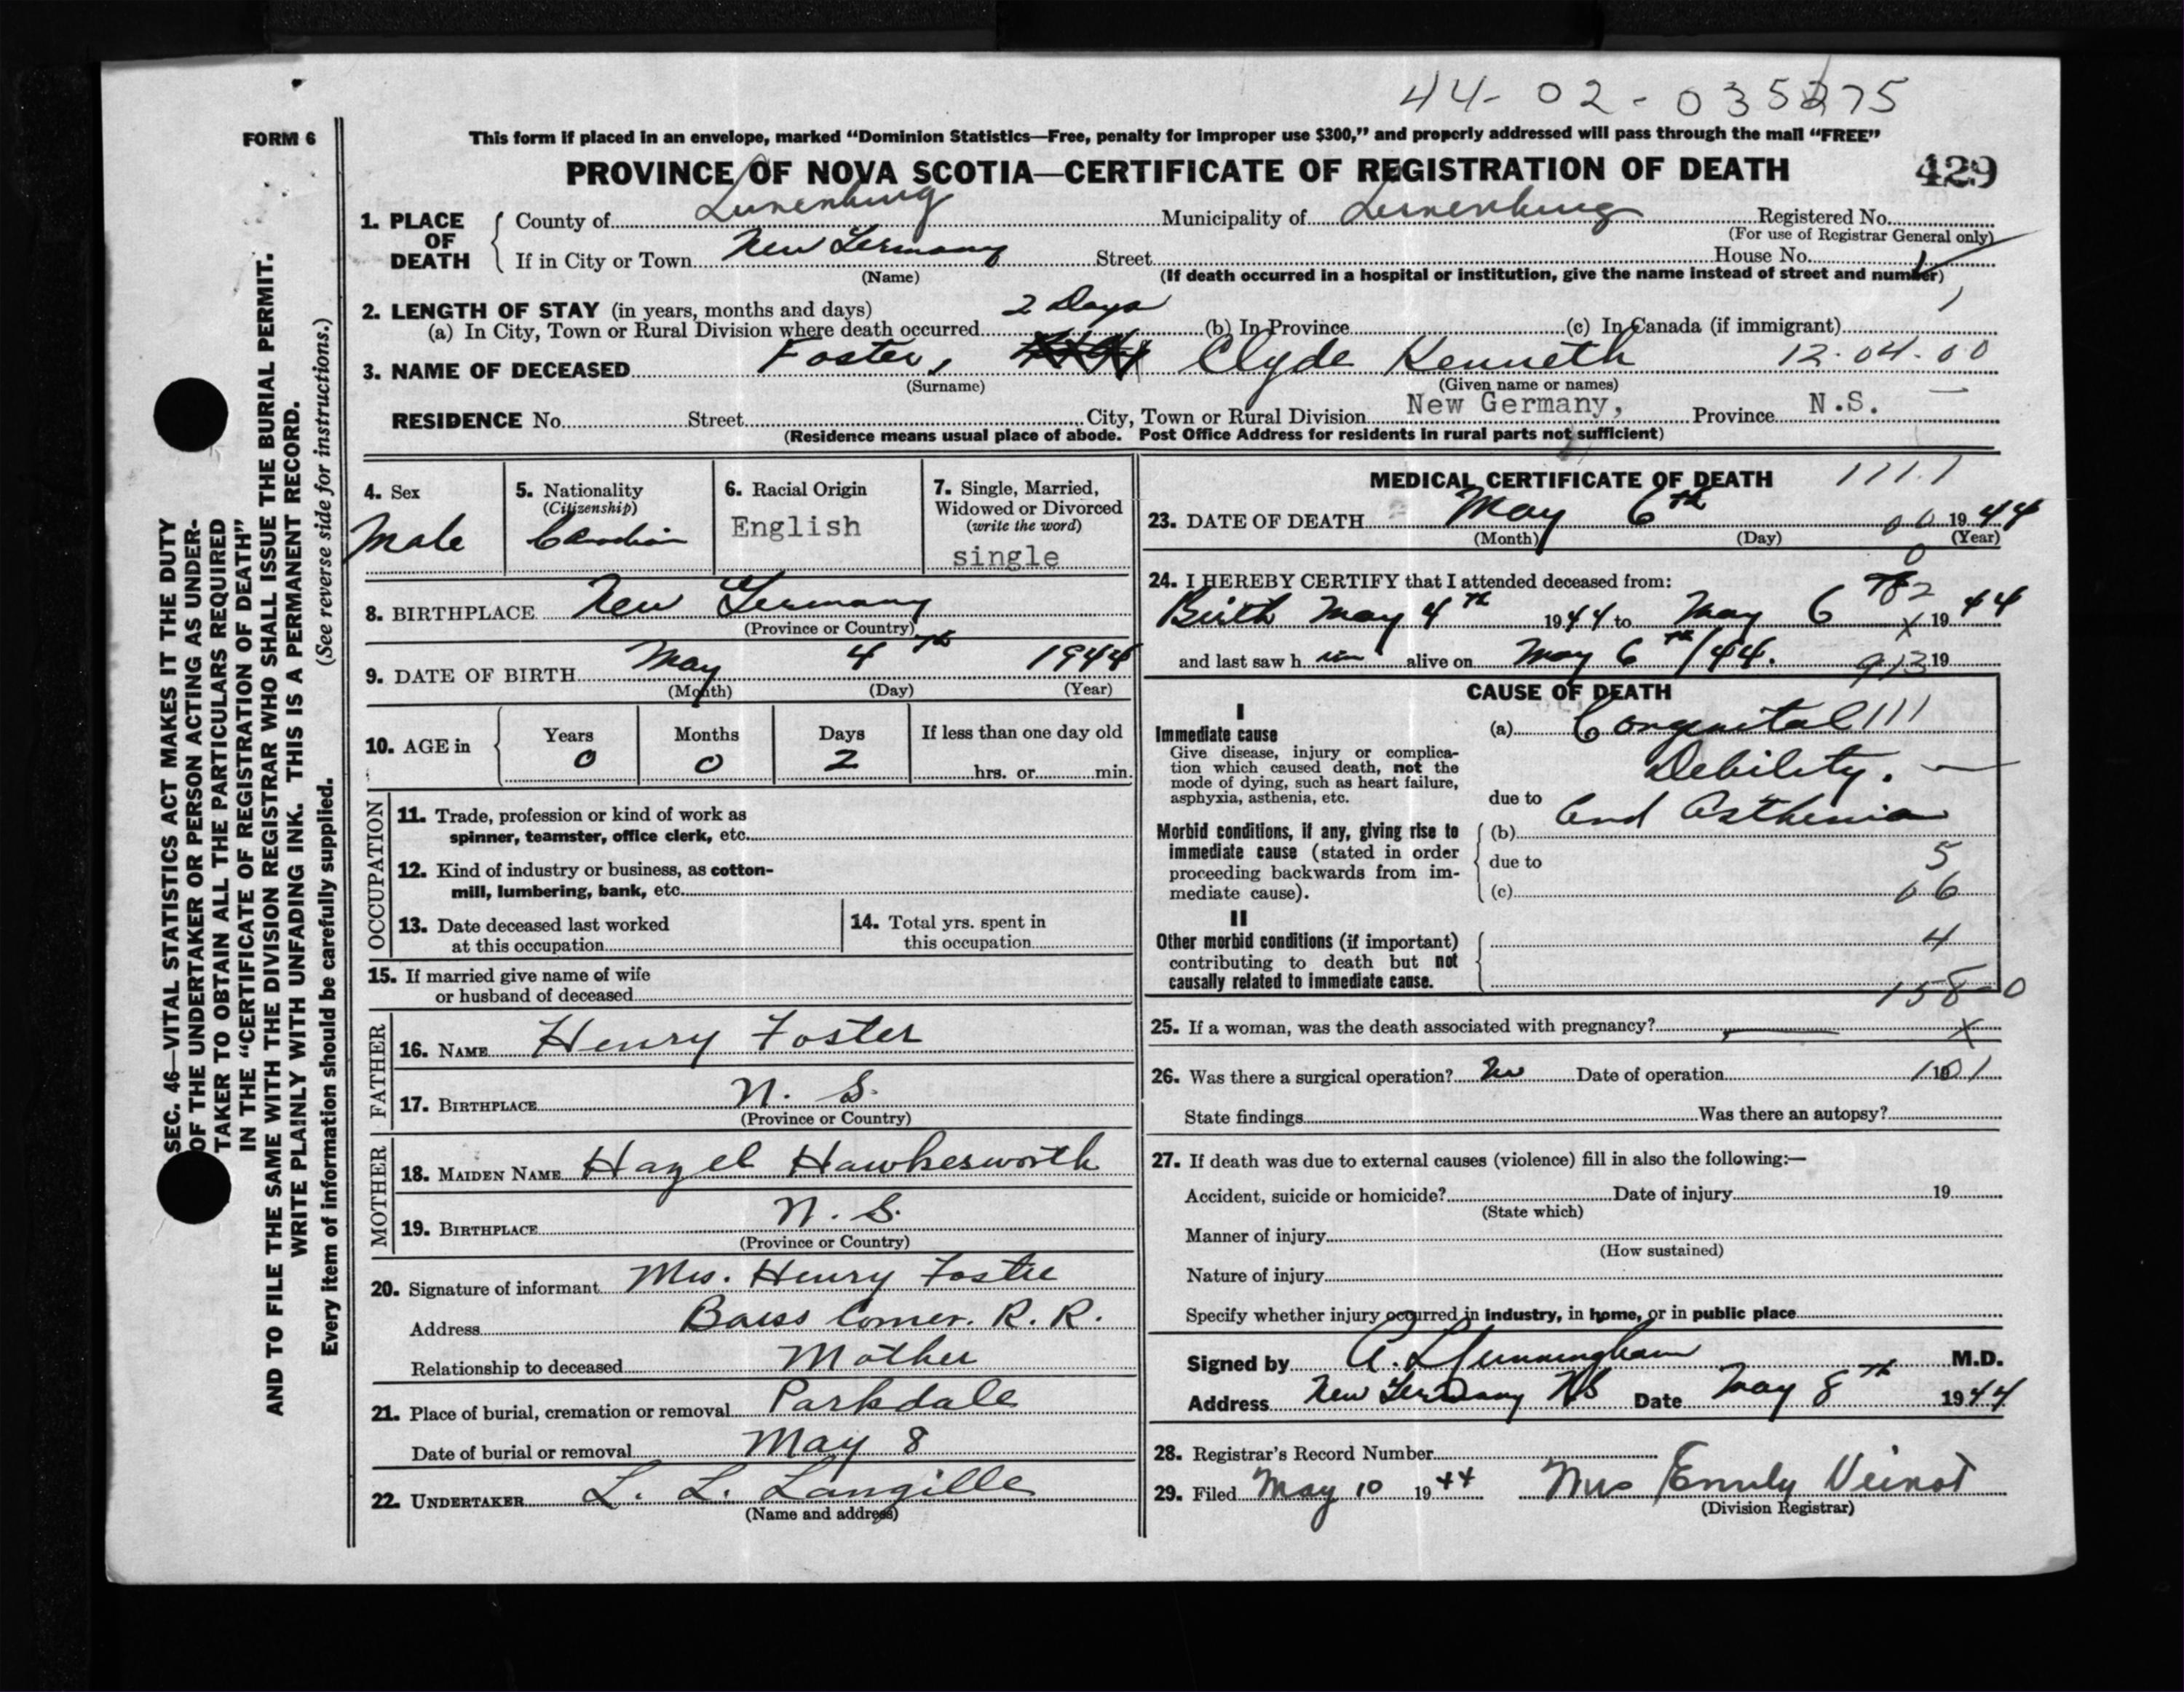 44-02-035275
FORM 6
This form if placed in an envelope, marked “Dominion Statistics—Free, penalty for improper use $300,” and properly addressed will pass through the mail “FREE”
PROVINCE OF NOVA SCOTIA—CERTIFICATE OF REGISTRATION OF DEATH 429
1. PLACE OF DEATH
County of Lunenburg Municipality of Lunenburg Registered No.
(For use of Registrar General only)
If in City or Town New Germany Street House No.
(Name) (If death occurred in a hospital or institution, give the name instead of street and number)
2. LENGTH OF STAY (in years, months and days) 2 Days 1
(a) In City, Town or Rural Division where death occurred (b) In Province (c) In Canada (if immigrant)
3. NAME OF DECEASED Foster, Clyde Kenneth 12.04.00
(Surname) (Given name or names)
RESIDENCE No. Street City, Town or Rural Division New Germany, Province N.S.
(Residence means usual place of abode. Post Office Address for residents in rural parts not sufficient)
4. Sex
Male
5. Nationality
(Citizenship)
Canadian
6. Racial Origin
English
7. Single, Married,
Widowed or Divorced
(write the word)
single
8. BIRTHPLACE New Germany
(Province or Country)
9. DATE OF BIRTH May 4th 1944
(Month) (Day) (Year)
10. AGE in
Years Months Days If less than one day old
0 0 2 hrs. or min.
OCCUPATION
11. Trade, profession or kind of work as
spinner, teamster, office clerk, etc.
12. Kind of industry or business, as cotton-
mill, lumbering, bank, etc.
13. Date deceased last worked
at this occupation
14. Total yrs. spent in
this occupation
15. If married give name of wife
or husband of deceased
FATHER
16. NAME Henry Foster
17. BIRTHPLACE N. S.
(Province or Country)
MOTHER
18. MAIDEN NAME Hazel Hawkesworth
19. BIRTHPLACE N. S.
(Province or Country)
20. Signature of informant Mrs. Henry Foster
Address Barss Corner. R. R.
Relationship to deceased Mother
21. Place of burial, cremation or removal Parkdale
Date of burial or removal May 8
22. UNDERTAKER L. L. Langille
(Name and address)
MEDICAL CERTIFICATE OF DEATH 111.1
23. DATE OF DEATH May 6th 00 1944
(Month) (Day) (Year)
24. I HEREBY CERTIFY that I attended deceased from:
Birth May 4th 1944 to May 6 1944
and last saw him alive on May 6th/44. 913 19
CAUSE OF DEATH
I
Immediate cause
Give disease, injury or complica-
tion which caused death, not the
mode of dying, such as heart failure,
asphyxia, asthenia, etc.
(a) Congenital 111
Debility.
due to
Morbid conditions, if any, giving rise to
immediate cause (stated in order
proceeding backwards from im-
mediate cause).
(b) and Asthenia
due to 5
(c) 06
II
Other morbid conditions (if important)
contributing to death but not
causally related to immediate cause.
4
158-0
25. If a woman, was the death associated with pregnancy? X
26. Was there a surgical operation? No Date of operation
State findings Was there an autopsy?
27. If death was due to external causes (violence) fill in also the following:—
Accident, suicide or homicide? Date of injury 19
(State which)
Manner of injury
(How sustained)
Nature of injury
Specify whether injury occurred in industry, in home, or in public place
Signed by A. L. Cunningham M.D.
Address New Germany NS Date May 8th 1944
28. Registrar's Record Number
29. Filed May 10 1944 Mrs Emily Veinot
(Division Registrar)
SEC. 46—VITAL STATISTICS ACT MAKES IT THE DUTY
OF THE UNDERTAKER OR PERSON ACTING AS UNDER-
TAKER TO OBTAIN ALL THE PARTICULARS REQUIRED
IN THE “CERTIFICATE OF REGISTRATION OF DEATH”
AND TO FILE THE SAME WITH THE DIVISION REGISTRAR WHO SHALL ISSUE THE BURIAL PERMIT.
WRITE PLAINLY WITH UNFADING INK. THIS IS A PERMANENT RECORD.
Every item of information should be carefully supplied. (See reverse side for instructions.)